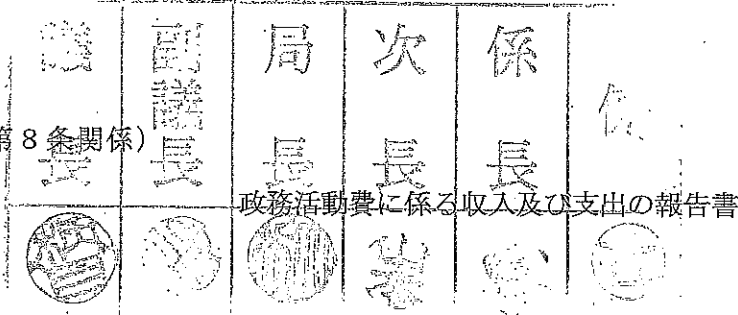 議長 副議長 局長 次長 係長 係
第8条関係)
政務活動費に係る収入及び支出の報告書